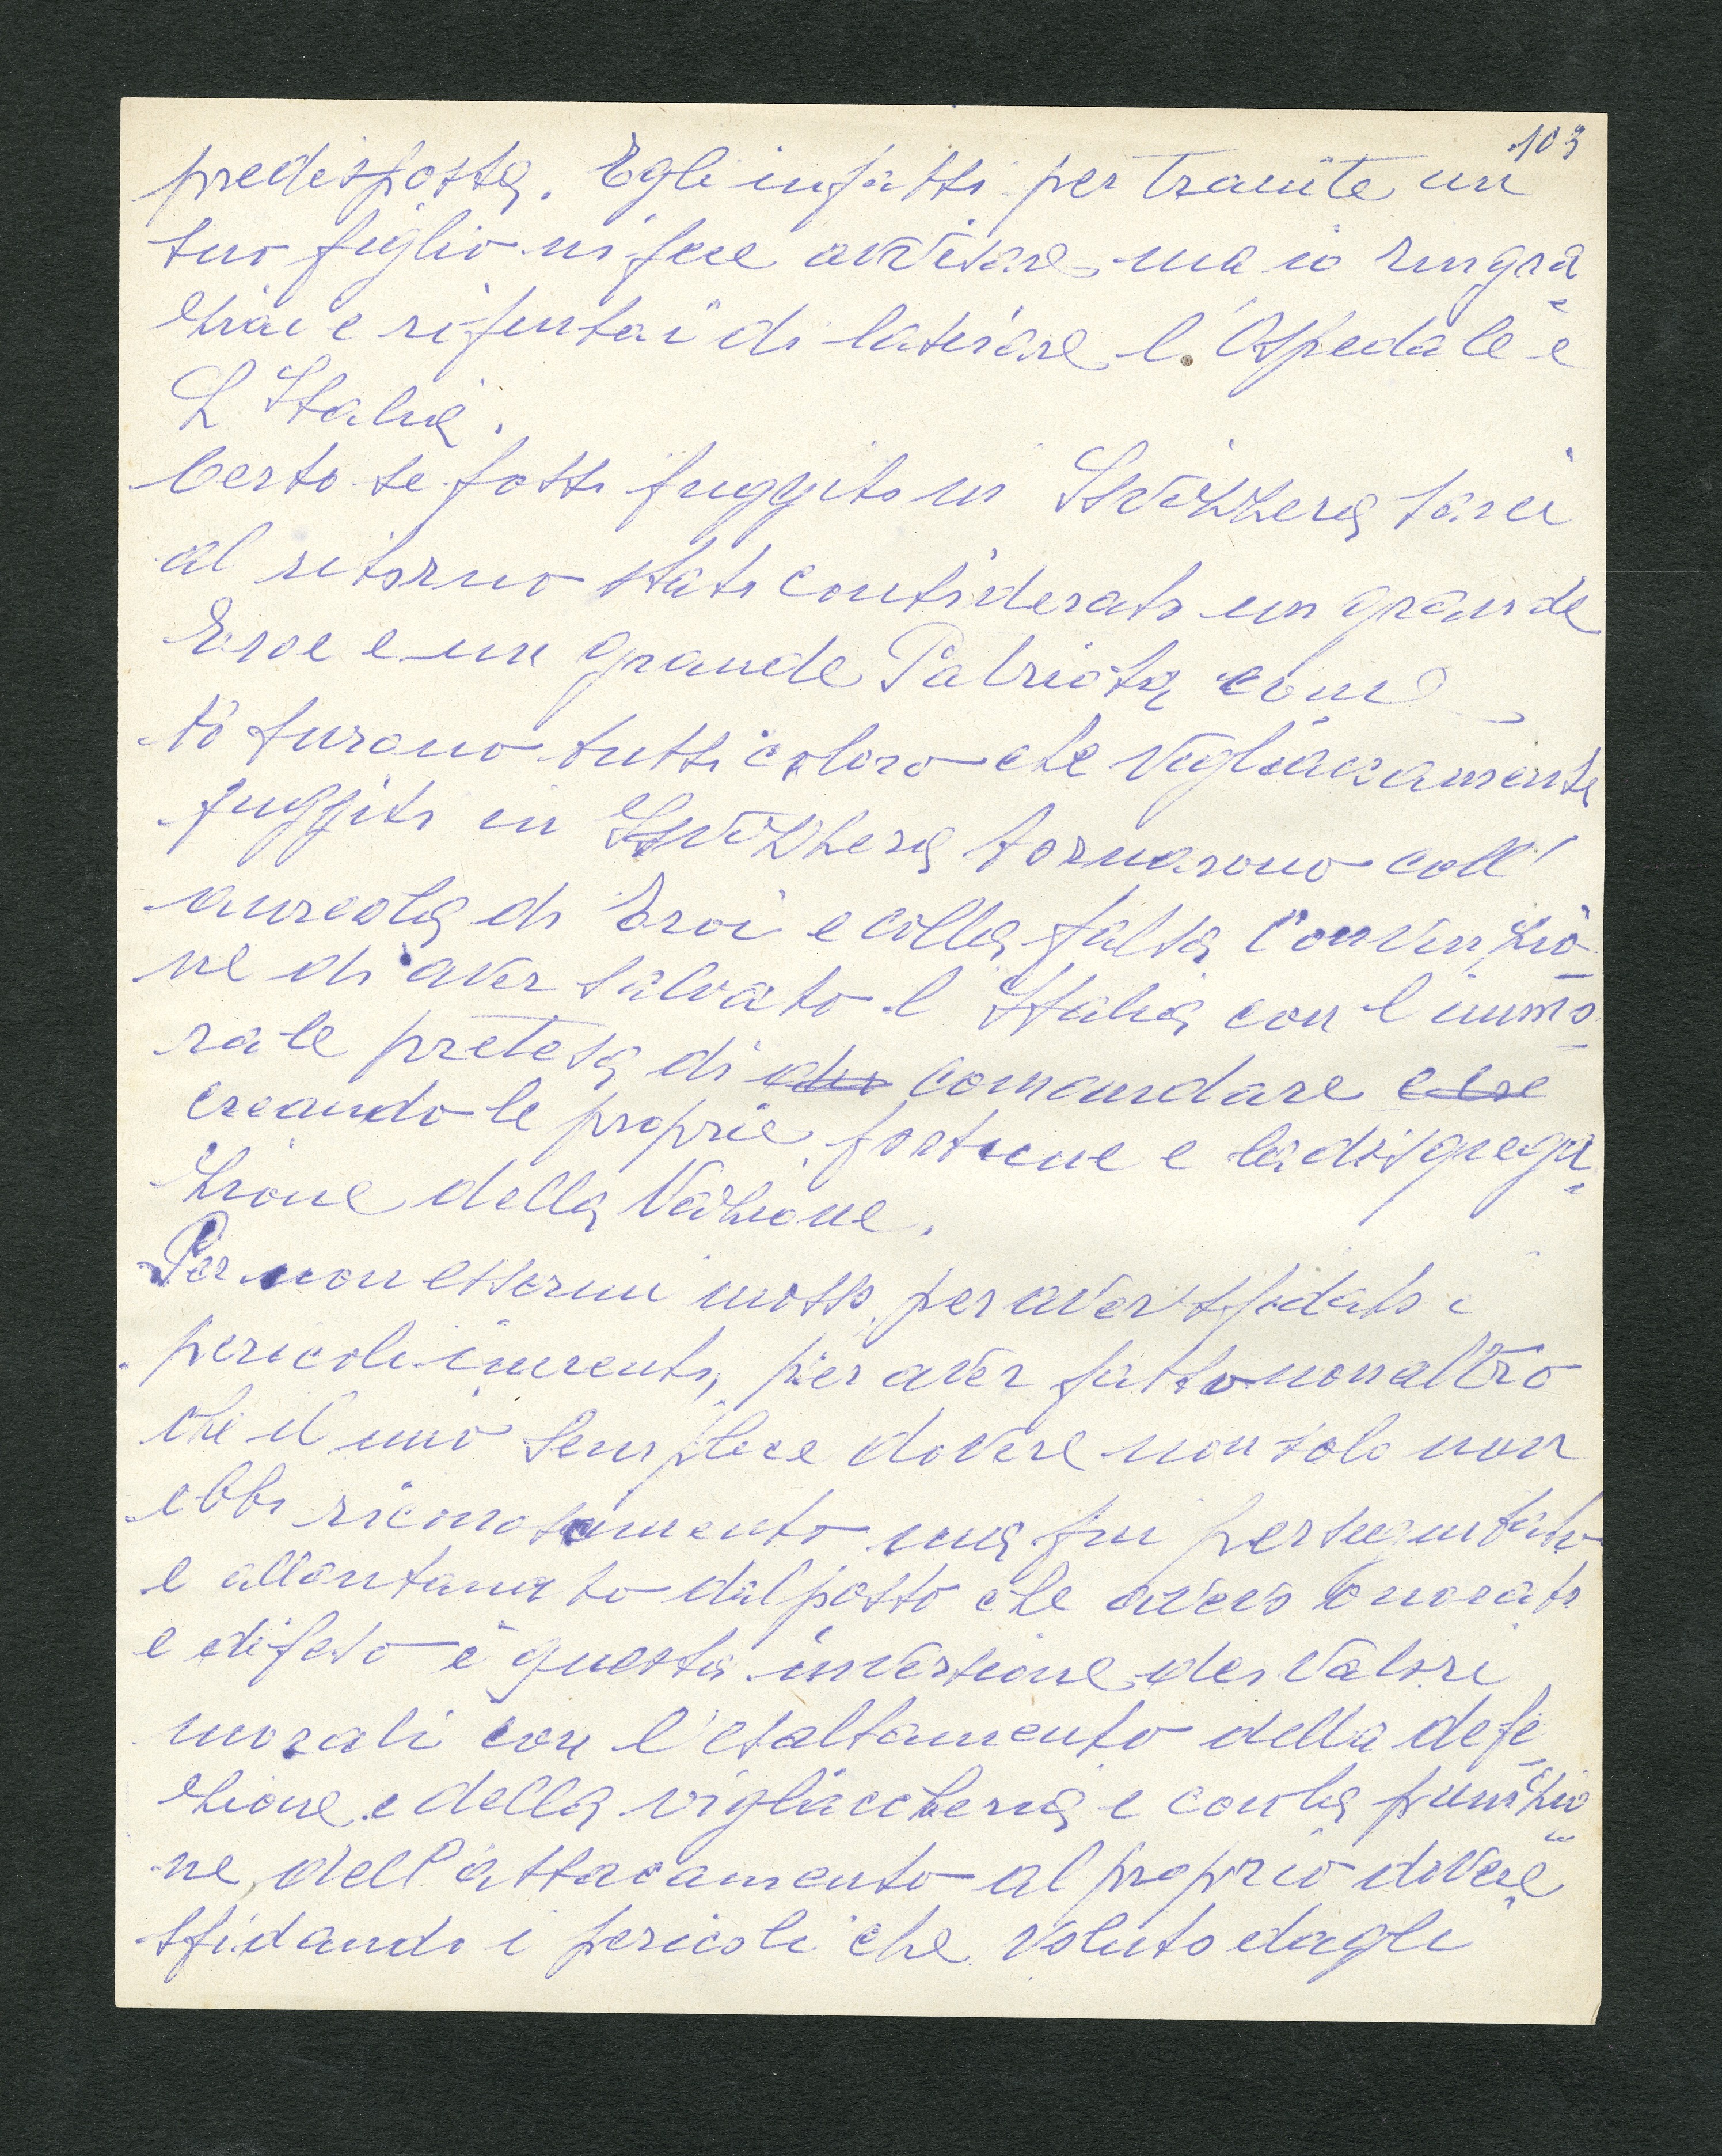 103
predisposta. Egli infatti per tramite un
suo figlio mi fece avvisare, ma io ringra-
ziai e rifiutai di lasciare l'Ospedale e
L'Italia.
Certo se fossi fuggito in Svizzera sarei
al ritorno stato considerato un grande
Eroe e un grande Patriota come
si furono tutti coloro che vigliaccamente
fuggiti in Svizzera tornarono coll'
aureola di Eroi e colla falsa convinzio-
ne di aver salvato l'Italia con l'immo-
rale pretesa di comandare
creando le proprie fortune e la disgrega-
zione della Nazione.
Per non essermi mosso, per aver sfidato i
pericoli inerenti, per aver fatto non altro
che il mio semplice dovere non solo non
ebbi riconoscimento ma fui perseguitato
e allontanato dal posto che avevo onorato
e difeso è questa inversione dei valori
morali con l'esaltamento della defe-
zione e della vigliaccheria e con la punizio-
ne dell'attaccamento al proprio dovere
sfidando i pericoli che voluto dagli